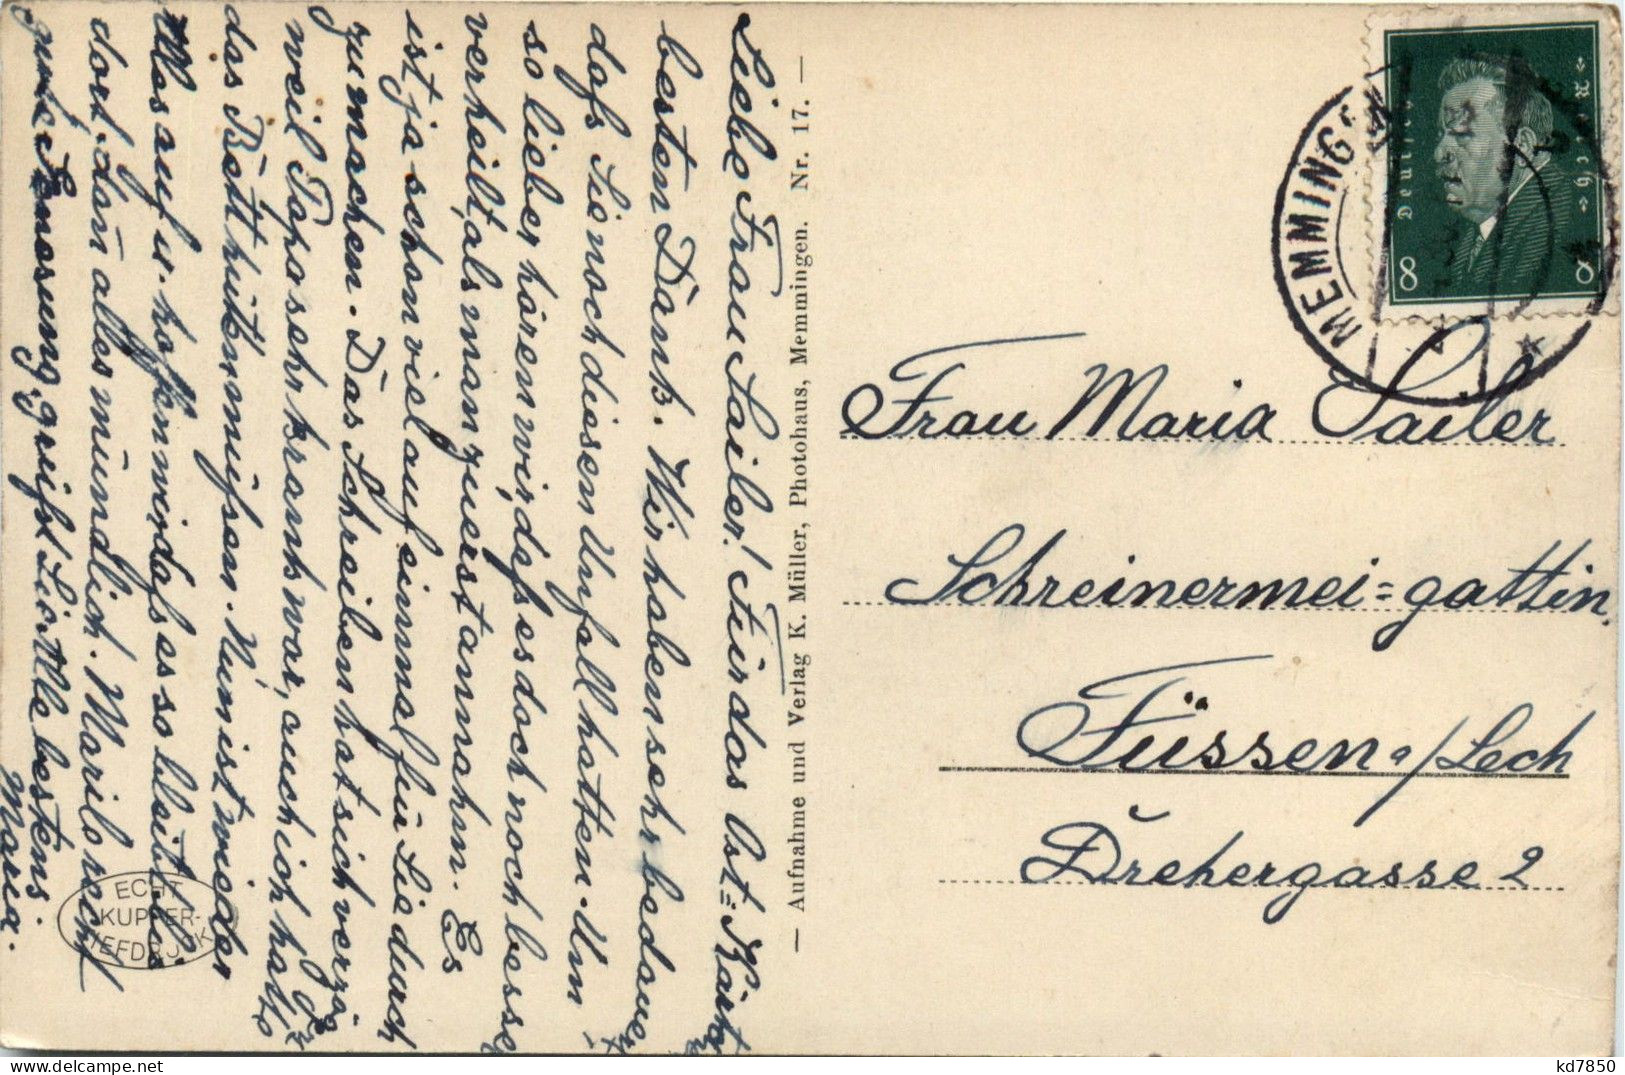 Liebe Frau Sailer! Für das Ost=Kärtchen
besten Dank. Wir haben sehr bedauert
daß Sie noch diesen Unfall hatten. Um
so lieber hören wir, daß es doch noch besser
verheilt, als man zuerst annahm. Es
ist ja schon viel auf einmal für Sie durch
zumachen. Das Schreiben hat sich verzög
weil Papa sehr krank war, auch ich hatte
das Bett hüten müssen. Nun ist wieder
Alles auf u. hoffen wir daß es so bleibt. Bis
dort, dann alles mündlich. Marile recht
gute Genesung, grüßt Sie Alle bestens.
Maria.
— Aufnahme und Verlag K. Müller, Photohaus, Memmingen. Nr. 17. —
ECHT
KUPFER-
TIEFDRUCK
MEMMINGEN
Deutsches Reich
8 8
Frau Maria Sailer
Schreinermei=gattin.
Füssen a/Lech
Drehergasse 2
kd7850